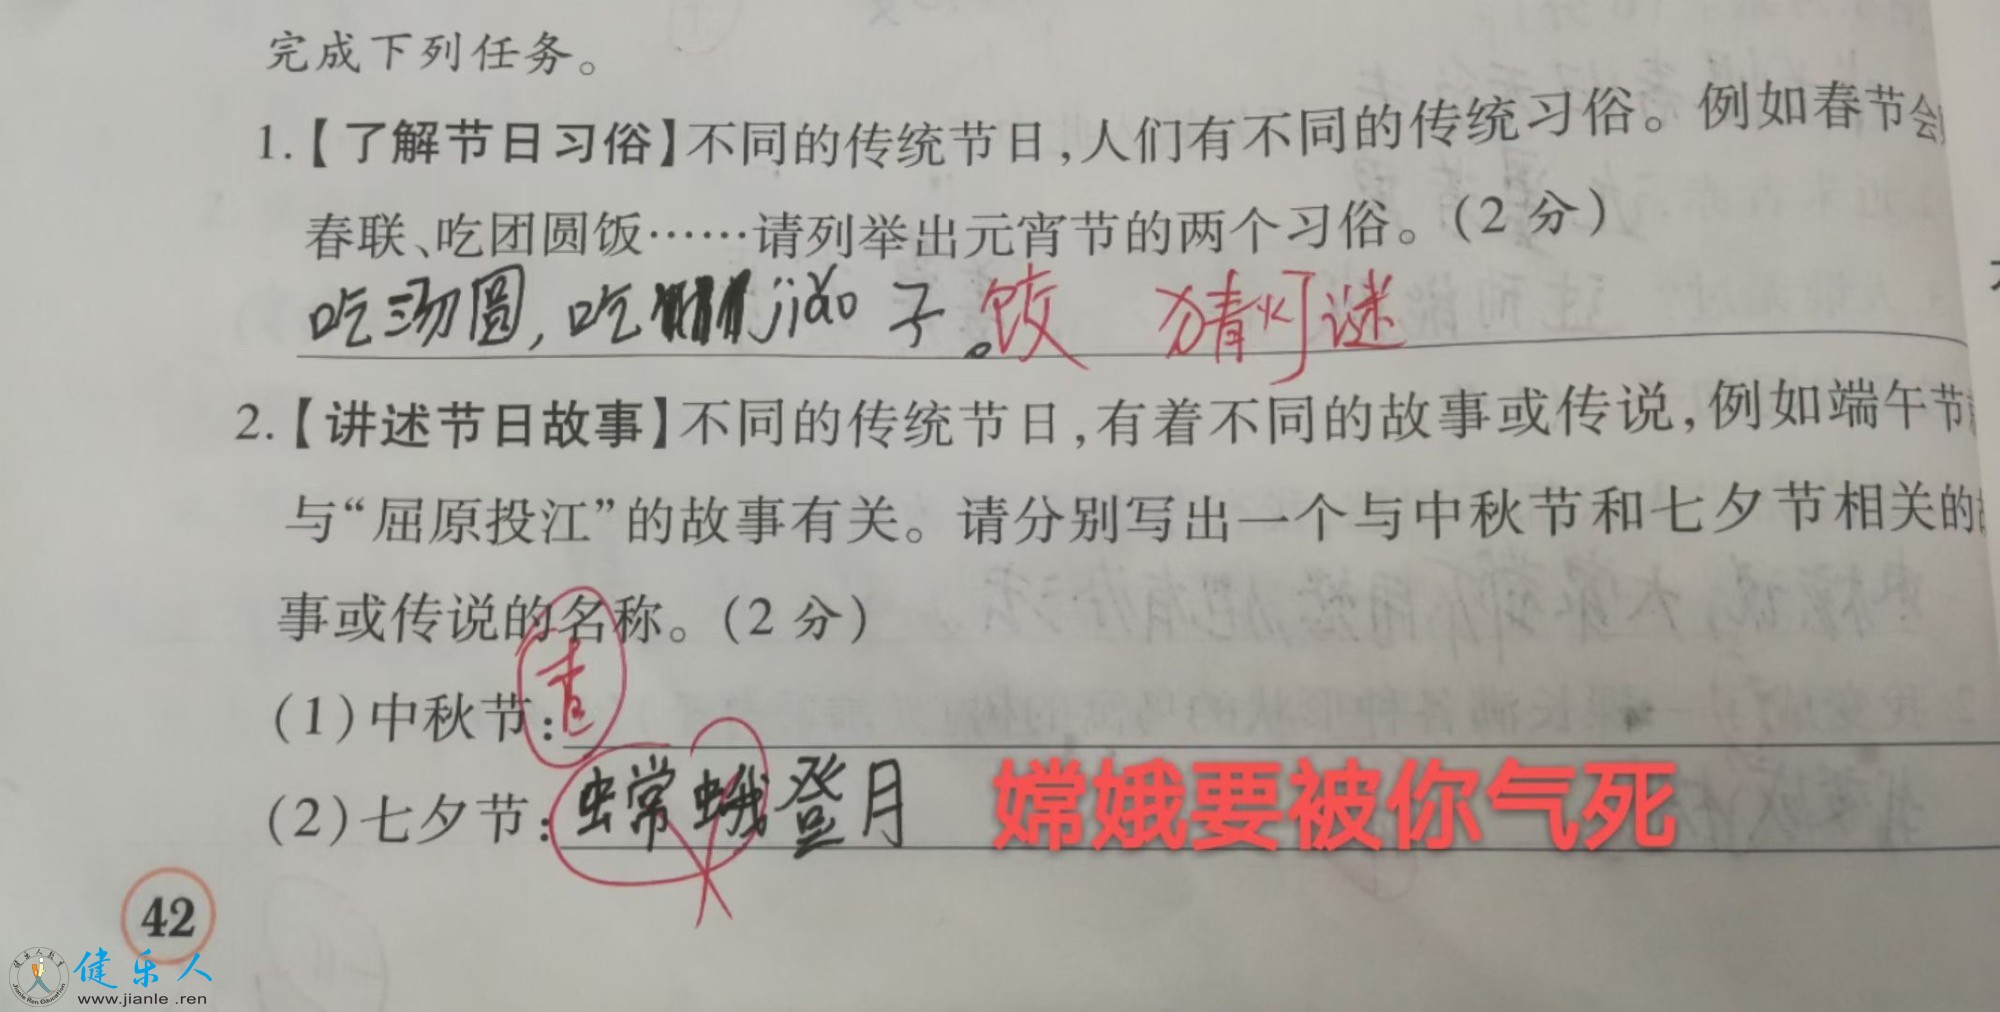 完成下列任务。
1.【了解节日习俗】不同的传统节日,人们有不同的传统习俗。例如春节会
春联、吃团圆饭……请列举出元宵节的两个习俗。(2分)
吃汤圆,吃jiǎo子。饺 猜灯谜
2.【讲述节日故事】不同的传统节日,有着不同的故事或传说,例如端午节
与“屈原投江”的故事有关。请分别写出一个与中秋节和七夕节相关的
事或传说的名称。(2分)
(1)中秋节:
(2)七夕节:蟐蛾登月 嫦娥要被你气死
42
健乐人
www.jianle .ren